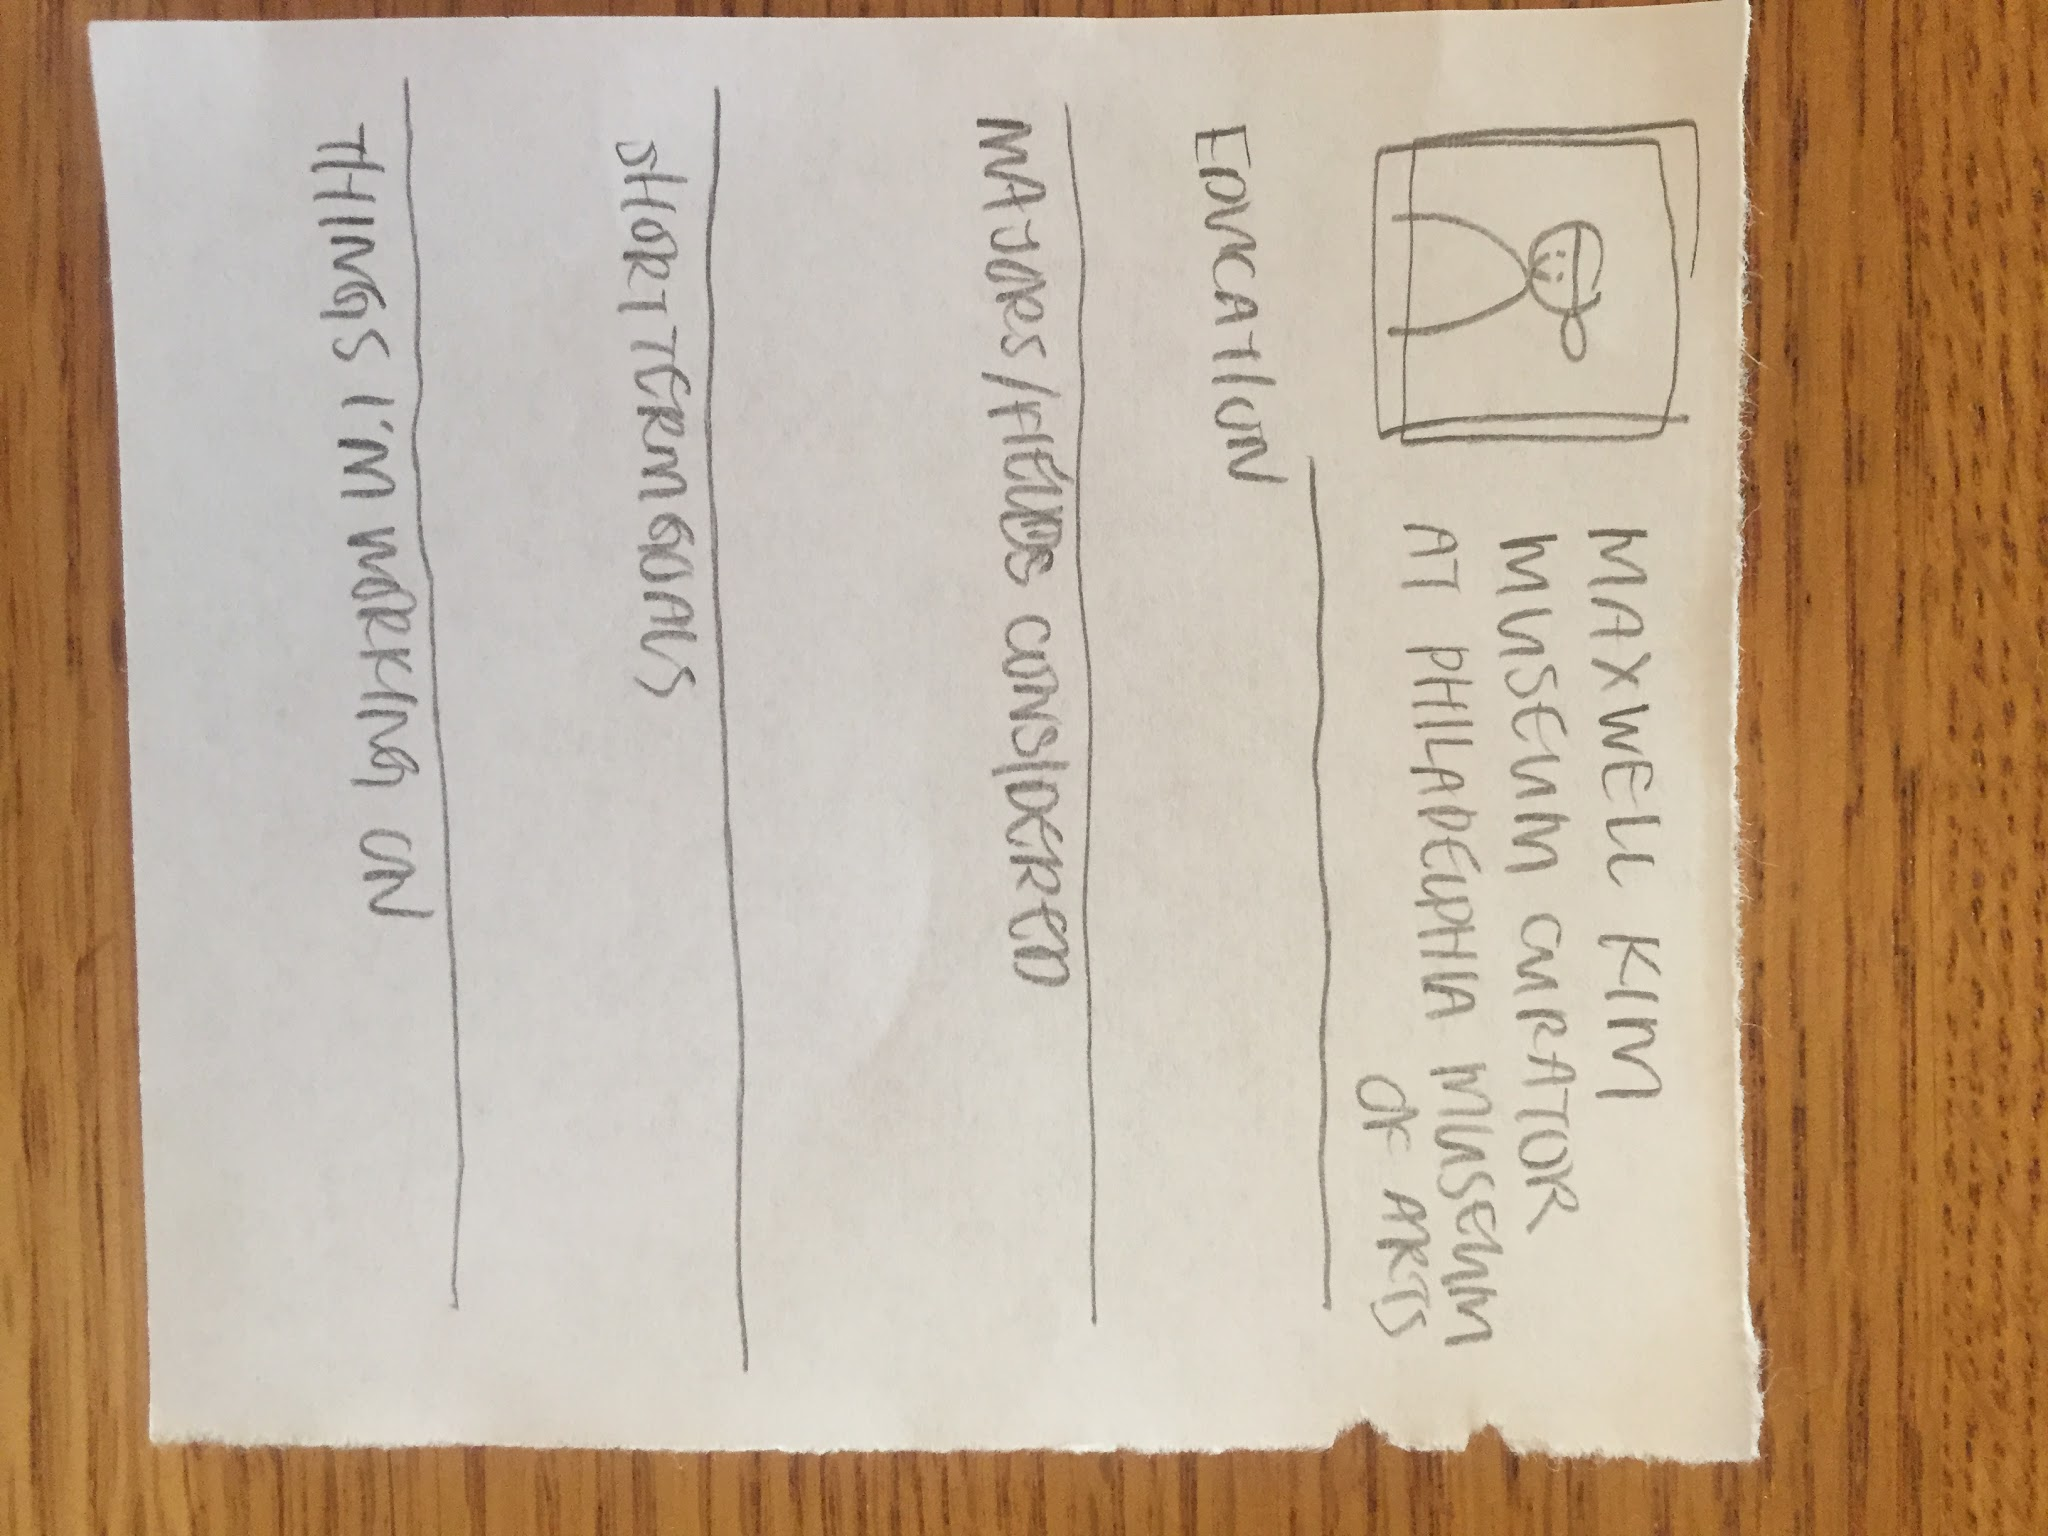 MAXWELL KIM
MUSEUM CURATOR
AT PHILADELPHIA MUSEUM
OF ARTS
EDUCATION
MAJORS/FIELDS CONSIDERED
SHORT TERM GOALS
THINGS I'M WORKING ON